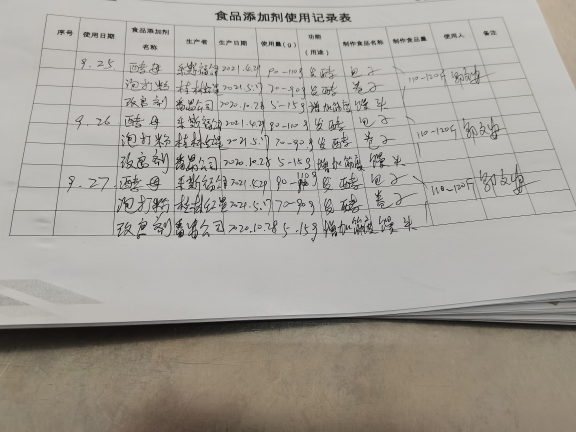 食品添加剂使用记录表
序号 使用日期 食品添加剂名称 生产者 生产日期 使用量(g) 功能(用途) 制作食品名称 制作食品量 使用人 备注
9.25 酵母 2021.4.29 90-110g 发酵 包子
泡打粉 桂林红星 2021.5.17 70-90g 发酵 卷子 110-120斤
改良剂 公司 2020.10.28 5-15g 增加筋度 馒头
9.26 酵母 2021.4.29 90-110g 发酵 包子
泡打粉 桂林红星 2021.5.17 70-90g 发酵 卷子 110-120斤
改良剂 公司 2020.10.28 5-15g 增加筋度 馒头
9.27 酵母 2021.4.29 90-110g 发酵 包子
泡打粉 桂林红星 2021.5.17 70-90g 发酵 卷子 110-120斤
改良剂 公司 2020.10.28 5-15g 增加筋度 馒头